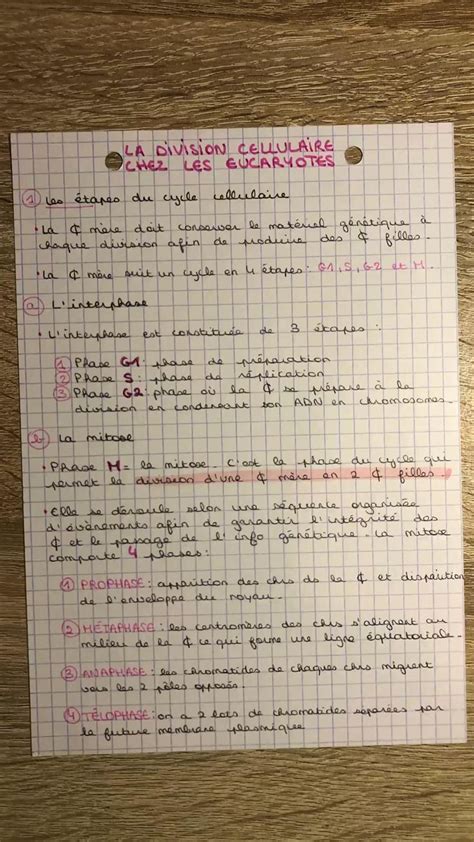 LA DIVISION CELLULAIRE
CHEZ LES EUCARYOTES
① Les étapes du cycle cellulaire
• La ₵ mère doit conserver le matériel génétique à
chaque division afin de produire des ₵ filles.
• La ₵ mère suit un cycle en 4 étapes : G1, S, G2 et M.
ⓐ L'interphase
• L'interphase est constituée de 3 étapes :
① Phase G1 : phase de préparation
② Phase S : phase de réplication
③ Phase G2 : phase où la ₵ se prépare à la
division en condensant son ADN en chromosomes.
ⓑ La mitose
• Phase M = la mitose. C'est la phase du cycle qui
permet la division d'une ₵ mère en 2 ₵ filles.
• Elle se déroule selon une séquence organisée
d'évènements afin de garantir l'intégrité des
₵ et le passage de l'info génétique. La mitose
comporte 4 phases :
① PROPHASE : apparition des chrs ds la ₵ et disparition
de l'enveloppe du noyau.
② MÉTAPHASE : les centromères des chrs s'alignent au
milieu de la ₵ ce qui forme une ligne équatoriale.
③ ANAPHASE : les chromatides de chaques chrs migrent
vers les 2 pôles opposés.
④ TÉLOPHASE : on a 2 lots de chromatides séparées par
la future membrane plasmique